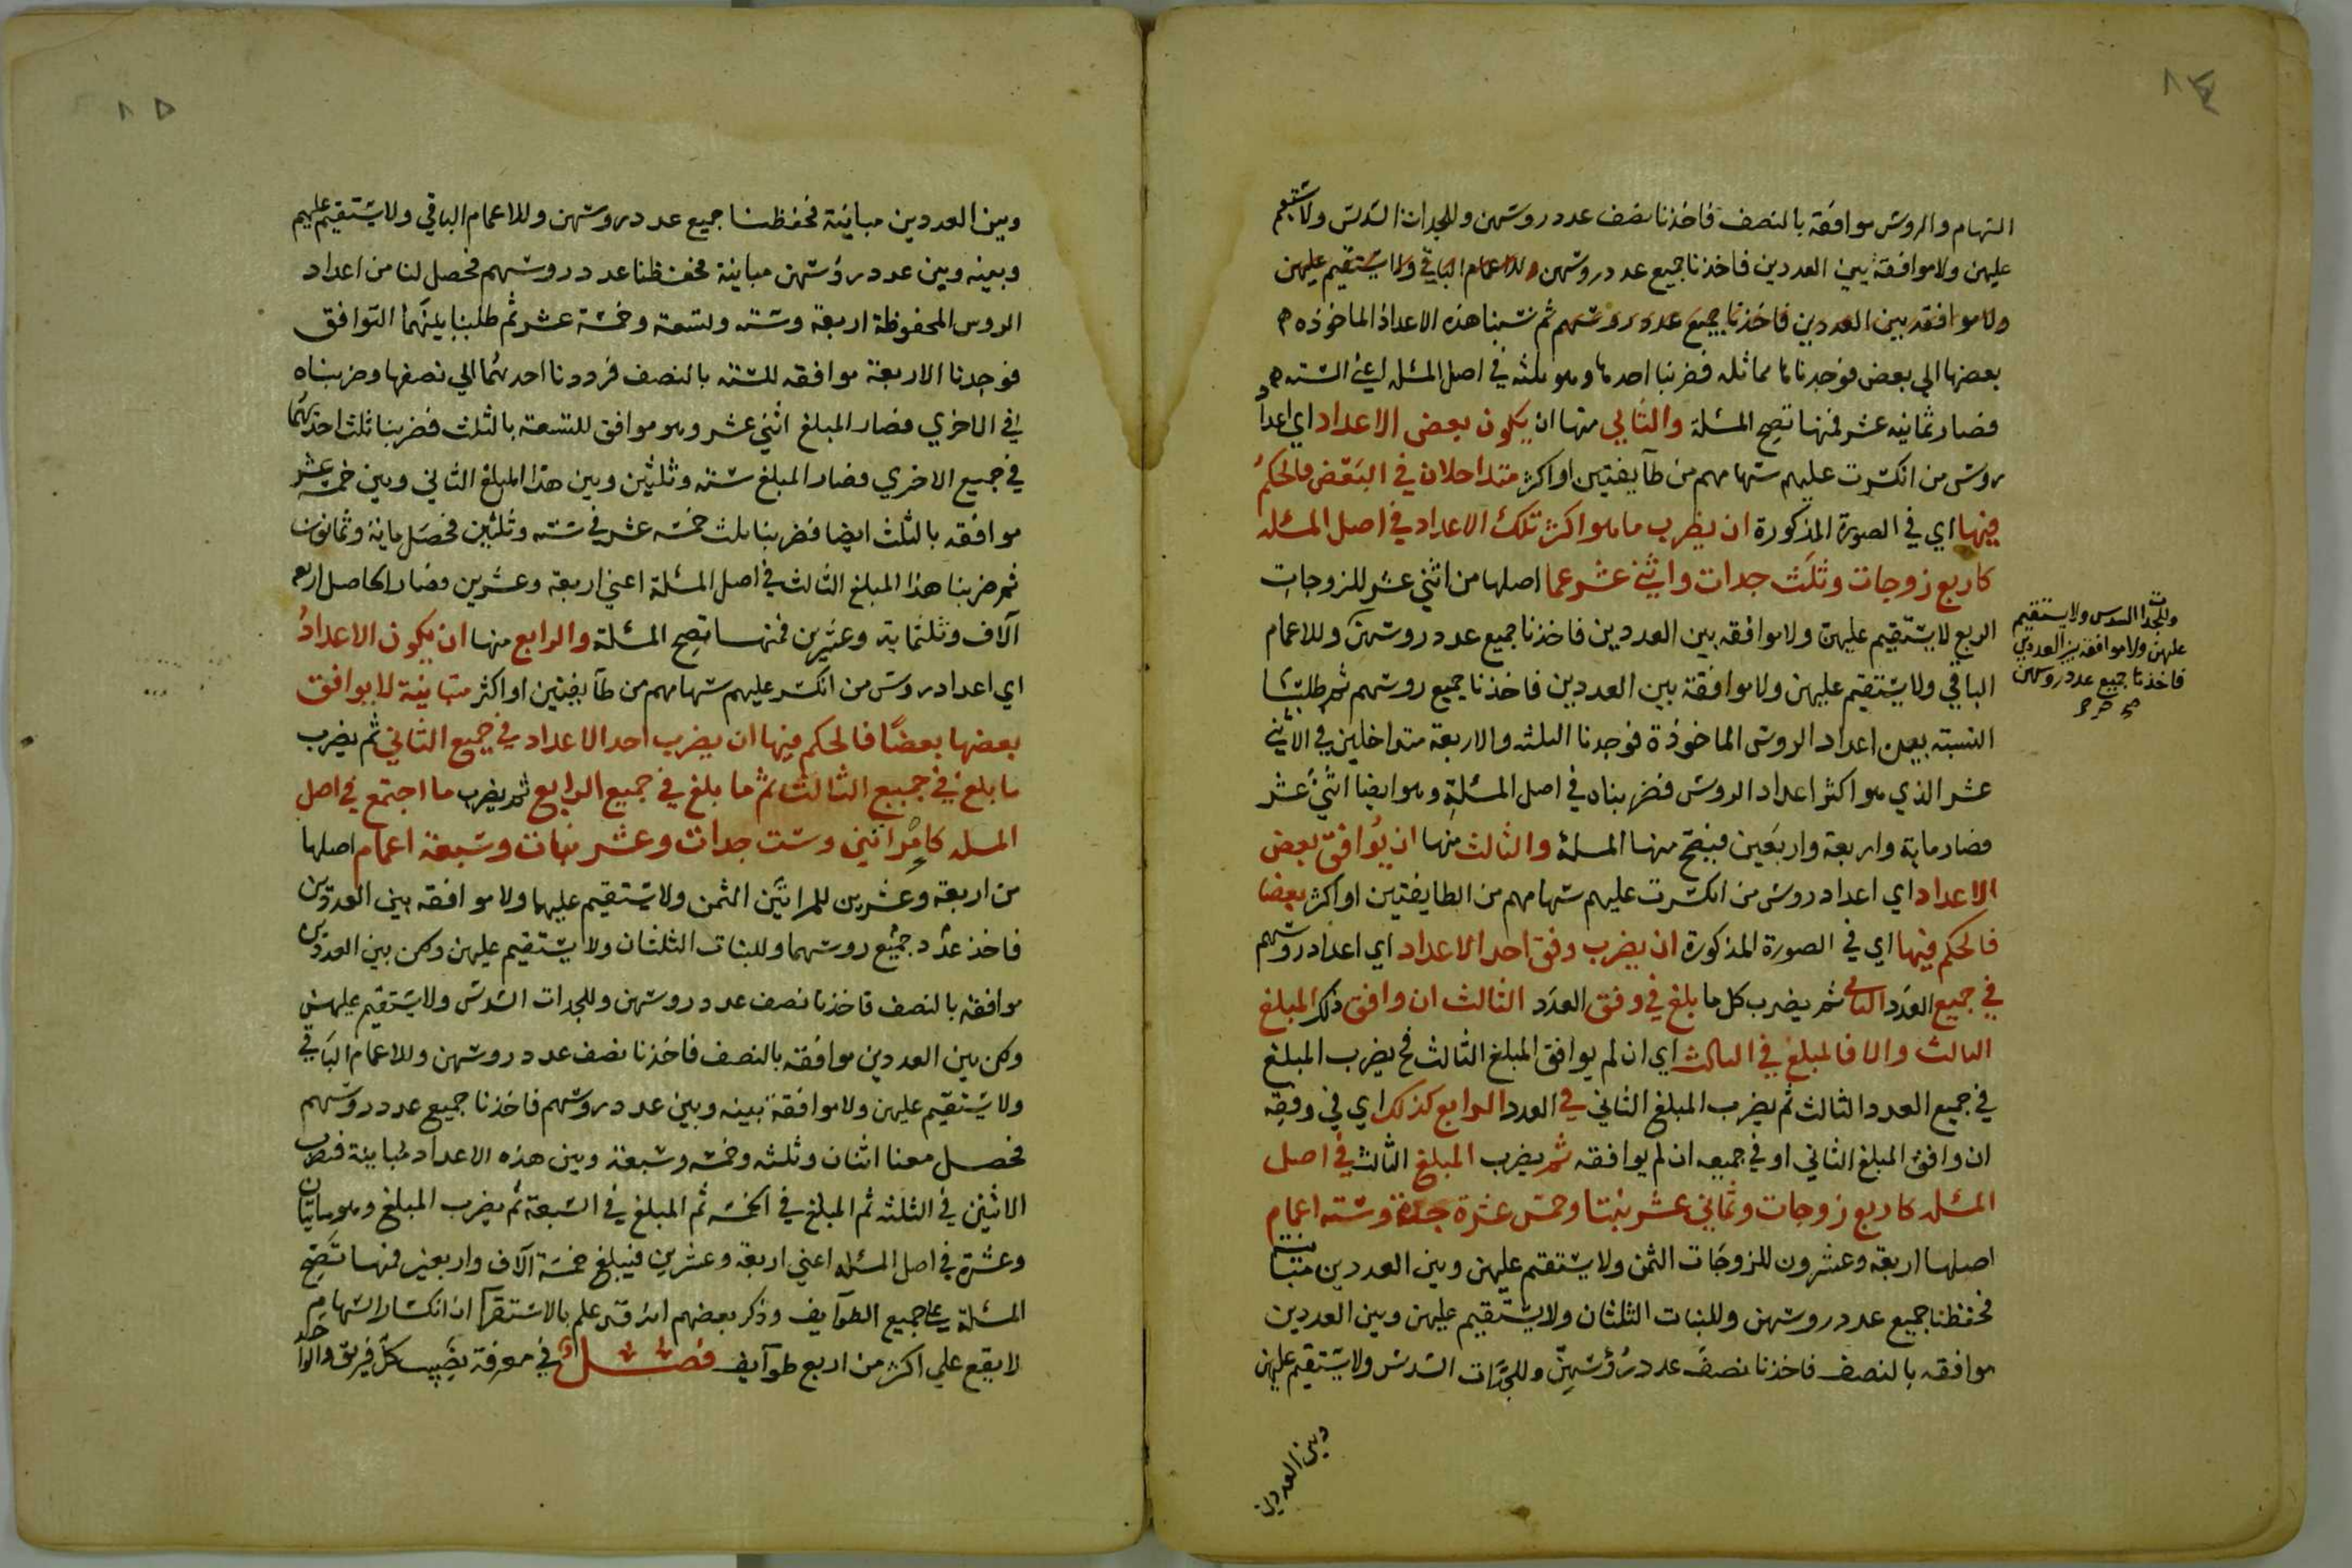 السهام والروس موافقة بالنصف فاخذنا نصف عدد روسهن وللجدات السدس ولا يستقيم
عليهن ولا موافقة بين العددين فاخذنا جميع عدد روسهن وللاعمام الباقي ولا يستقيم عليهن
ولا موافقه بين العددين فاخذنا جميع عدد روسهم ثم نسبنا هذه الاعداد الماخوذه
بعضها الي بعض فوجدناها مماثله فضربنا احدها وهو ثلثه في اصل المسئله اعني السته
فصار ثمانيه عشر فمنها تصح المسئلة والثاني منها ان يكون بعض الاعداد اي اعداد
روس من انكسرت عليهم سهامهم من طآيفتين او اكثر متداخلان في البعض فالحكم
فيها اي في الصورة المذكورة ان يضرب ما هو اكثر تلك الاعداد في اصل المسئله
كاربع زوجات وثلث جدات واثني عشر عما اصلها من اثني عشر للزوجات
الربع لا يستقيم عليهن ولا موافقه بين العددين فاخذنا جميع عدد روسهن وللاعمام
الباقي ولا يستقيم عليهن ولا موافقة بين العددين فاخذنا جميع روسهم ثم طلبنا
النسبته بين اعداد الروس الماخوذة فوجدنا الثلثه والاربعة متداخلين في الاثني
عشر الذي هو اكثر اعداد الروس فضربناه في اصل المسئلة وهو ايضا اثني عشر
فصار ماية واربعة واربعين فيصح منها المسلة والثالث منها ان يوافق بعض
الاعداد اي اعداد روس من انكسرت عليهم سهامهم من الطايفتين او اكثر بعضا
فالحكم فيها اي في الصورة المذكورة ان يضرب وفق احد الاعداد اي اعداد روسهم
في جميع العدد الثاني ثم يضرب كل ما بلغ في وفق العدد الثالث ان وافق ذلك المبلغ
الثالث والا فالمبلغ في الثالث اي ان لم يوافق المبلغ الثالث فح يضرب المبلغ
في جميع العدد الثالث ثم يضرب المبلغ الثاني في العدد الرابع كذلك اي في وفقه
ان وافق المبلغ الثاني او في جميعه ان لم يوافقه ثم يضرب المبلغ الثالث في اصل
المسئله كاربع زوجات وثماني عشر بنتا وخمس عشرة جدة وسته اعمام
اصلها اربعه وعشرون للزوجات الثمن ولا يستقيم عليهن وبين العددين متباينة
فحفظنا جميع عدد روسهن وللبنات الثلثان ولا يستقيم عليهن وبين العددين
موافقه بالنصف فاخذنا نصف عدد رؤسهن وللجدات السدس ولا يستقيم عليهن
وبين العددين
وللجدات السدس ولا يستقيم
عليهن ولا موافقة بين العددين
فاخذنا جميع عدد روسهن
وبين العددين مباينة فحفظنا جميع عدد روسهن وللاعمام الباقي ولا يستقيم عليهم
وبينه وبين عدد رؤسهن مباينة فحفظنا عدد روسهم فحصل لنا من اعداد
الروس المحفوظة اربعة وسته وتسعة وخمسة عشر ثم طلبنا بينهما التوافق
فوجدنا الاربعة موافقه للسته بالنصف فرددنا احديهما الي نصفها وضربناه
في الاخري فصار المبلغ اثني عشر وهو موافق للتسعة بالثلث فضربنا ثلث احديهما
في جميع الاخري فصار المبلغ سته وثلثين وبين هذا المبلغ الثاني وبين خمسة عشر
موافقه بالثلث ايضا فضربنا ثلث خمسه عشر في سته وثلثين فحصل ماية وثمانون
ثم ضربنا هذا المبلغ الثالث في اصل المسئلة اعني اربعة وعشرين فصار الحاصل اربعة
آلاف وثلثماية وعشرين فمنها تصح المسئلة والرابع منها ان يكون الاعداد
اي اعداد روس من انكسر عليهم سهامهم من طآيفتين او اكثر متباينة لا يوافق
بعضها بعضا فالحكم فيها ان يضرب احد الاعداد في جميع الثاني ثم يضرب
ما بلغ في جميع الثالث ثم ما بلغ في جميع الرابع ثم يضرب ما اجتمع في اصل
المسله كامراتين وست جدات وعشر بنات وسبعة اعمام اصلها
من اربعة وعشرين للمراتين الثمن ولا يستقيم عليها ولا موافقه بين العددين
فاخذ عدد جميع روسهما وللبنات الثلثان ولا يستقيم عليهن ولكن بين العددين
موافقه بالنصف فاخذنا نصف عدد روسهن وللجدات السدس ولا يستقيم عليهن
ولكن بين العددين موافقه بالنصف فاخذنا نصف عدد روسهن وللاعمام الباقي
ولا يستقيم عليهن ولا موافقة بينه وبين عدد روسهم فاخذنا جميع عدد روسهم
فحصل معنا اثنان وثلثه وخمسه وسبعة وبين هذه الاعداد مباينة فيضرب
الاثنين في الثلثه ثم المبلغ في الخمسه ثم المبلغ في السبعة ثم يضرب المبلغ وهو مايتان
وعشرة في اصل المسئله اعني اربعة وعشرين فيبلغ خمسة آلاف واربعين فمنها تصح
المسئلة علي جميع الطوآيف وذكر بعضهم انه قد علم بالاستقرآ ان انكسار السهام
لا يقع علي اكثر من اربع طوآيف فصل في معرفة نصيب كل فريق